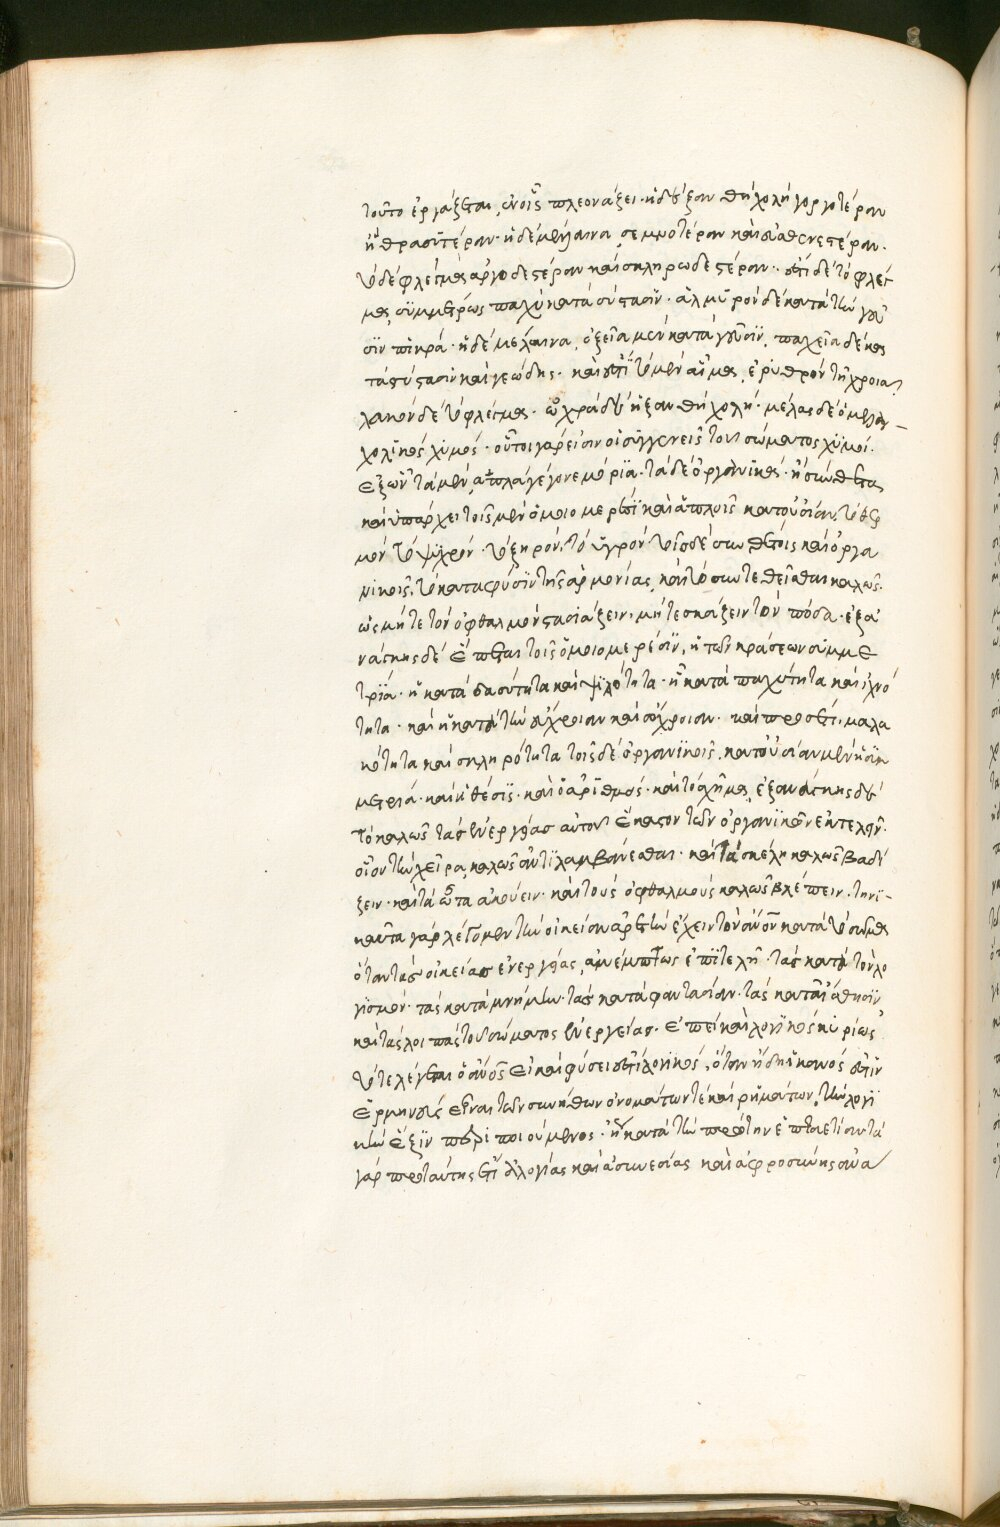 τοῦτο ἐργάζεται, ἐν οἷς πλεονάζει· ἡ δὲ ξανθὴ χολὴ γοργοτέραν
ἢ θρασυτέραν· ἡ δὲ μέλαινα, σεμνοτέραν καὶ εὐσταθεστέραν·
τὸ δὲ φλέγμα ἀργοδεστέραν καὶ σκληρωδεστέραν· ἔτι δὲ τὸ φλέγ
μα, συμμέτρως παχὺ κατὰ σύστασιν· ἁλμυρὸν δὲ κατὰ τὴν γεῦ
σιν πικρά· ἡ δὲ μέλαινα, ὀξεῖα μὲν κατὰ γεῦσιν, παχεῖα δὲ κα
τὰ σύστασιν καὶ γεώδης· καὶ ἔτι τὸ μὲν αἷμα, ἐρυθρὸν τῇ χροιᾷ
λευκὸν δὲ τὸ φλέγμα· ὠχρὰ δὲ ἡ ξανθὴ χολή· μέλας δὲ ὁ μελαγ-
χολικὸς χυμός· οὗτοι γάρ εἰσιν οἱ συγγενεῖς τοῦ σώματος χυμοί·
ἐξ ὧν τὰ μὲν, ἁπλᾶ γέγονε μόρια· τὰ δὲ ὀργανικὰ· ἢ σύνθετα
καὶ ὑπάρχει τοῖς μὲν ὁμοιομερέσι καὶ ἁπλοῖς κατ' οὐσίαν, τὸ θερ
μὸν τὸ ψυχρόν· τὸ ξηρὸν, τὸ ὑγρόν· τοῖς δὲ συνθέτοις καὶ ὀργα
νικοῖς, τὸ κατὰ φύσιν τῆς ἁρμονίας, καὶ τὸ συντεθεῖσθαι καλῶς·
ὡς μήτε τὸν ὀφθαλμὸν στασιάζειν, μήτε σκάζειν τὸν πόδα· ἐξα
νάγκης δὲ ἕπεται τοῖς ὁμοιομερέσιν, ἡ τῶν κράσεων συμμε
τρία· ἢ κατὰ δασύτητα καὶ ψιλότητα· ἢ κατὰ παχύτητα καὶ ἰσχνό
τητα· καὶ ἢ κατὰ τὴν εὔχροιαν καὶ ἄχροιαν· καὶ προσέτι, μαλα
κότητα καὶ σκληρότητα τοῖς δὲ ὀργανικοῖς, κατ' οὐσίαν μὲν ἡ συμ
μετρία· καὶ ἡ θέσις· καὶ ὁ ἀριθμός· καὶ τὸ σχῆμα, ἐξ ἀνάγκης δὲ
τὸ καλῶς τὰς ἐνεργείας αὐτοῦ ἕκαστον τῶν ὀργανικῶν ἐκτελεῖν·
οἷον τὴν χεῖρα, καλῶς ἀντιλαμβάνεσθαι· καὶ τὰ σκέλη καλῶς βαδί
ζειν· καὶ τὰ ὦτα ἀκούειν· καὶ τοὺς ὀφθαλμοὺς καλῶς βλέπειν· τηνι-
καῦτα γὰρ λέγομεν τὴν οἰκείαν ἀρετὴν ἔχειν τὸν ἄνον κατὰ τὸ σῶμα
ὅταν τὰς οἰκείας ἐνεργείας, ἀνεμπτως ἐπιτελῇ· τὰς κατὰ τὸν λο
γισμόν· τὰς κατὰ μνήμην· τὰς κατὰ φαντασίαν· τὰς κατ' αἴσθησιν
καὶ τὰς λοιπὰς τοῦ σώματος ἐνεργείας· ἐπεὶ καὶ λογικὸς κυρίως
τότε λέγεται ὁ ἄνος εἰ καὶ φύσει ἐστὶ λογικός, ὅταν ἤδη ἱκανὸς ἐστὶν
ἑρμηνεὺς εἶναι τῶν συνήθων ὀνομάτων τὲ καὶ ῥημάτων, τὴν λογι
κὴν ἕξιν περιποιούμενος· ἣν κατὰ τὴν πρώτην ἑπταετίαν τὰ
γὰρ πρὸ ταύτης ἔτι ἀλογίας καὶ ἀσυνεσίας καὶ ἀφροσύνης